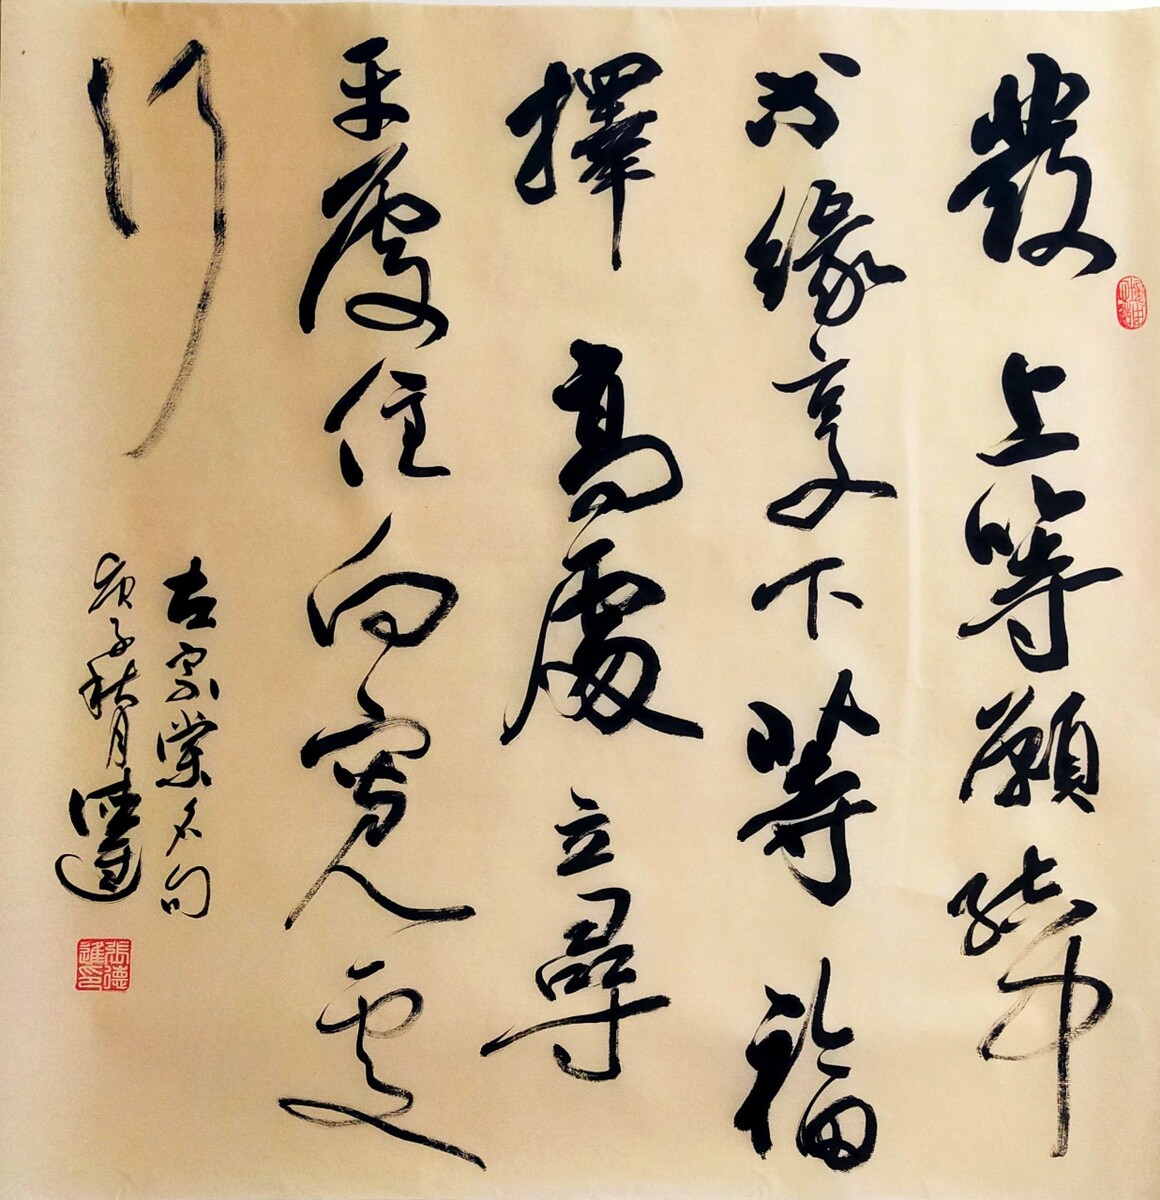 發上等願結中
等緣享下等福
擇高處立尋
平處住向寬處
行
左宗棠名句
庚子秋月德進
張德進印